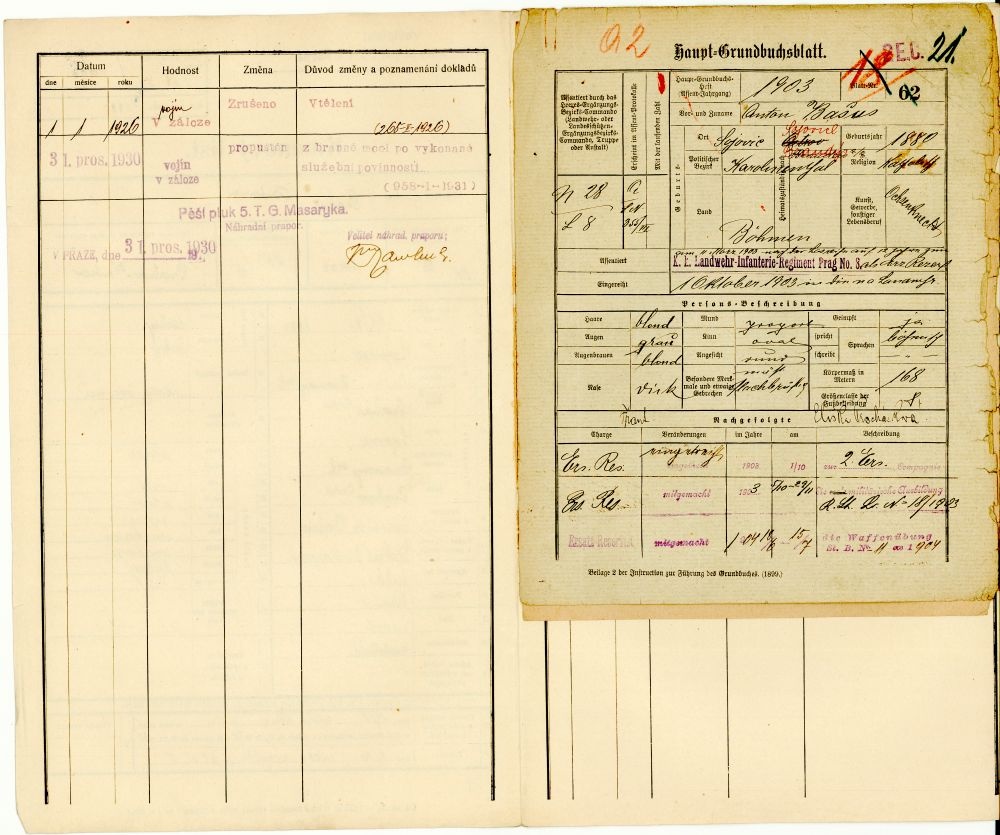 Datum
Hodnost
Změna
Důvod změny a poznamenání dokladů
dne měsíce roku
1 1 1926
vojín
v záloze
Zrušeno
Vtělení
(265-I-1926)
31. pros. 1930
vojín
v záloze
propuštěn
z branné moci po vykonané
služební povinnosti.
(958-I-1931)
Pěší pluk 5. T. G. Masaryka.
Náhradní prapor.
V PRAZE, dne 31. pros. 1930
19
Velitel náhrad. praporu:
92
Haupt-Grundbuchsblatt.
21.
Haupt-Grundbuchs-
Heft
(Assent-Jahrgang)
1903
Blatt-Nr.
62
Vor- und Zuname
Anton
Assentiert durch das
Heeres-Ergänzungs-
Bezirks-Commando
(Landwehr- oder
Landesschützen-
Ergänzungsbezirks-
Commando, Truppe
oder Anstalt)
Erscheint im Assent-Protokolle
Mit der laufenden Zahl
Geburts-
Ort
Politischer
Bezirk
Karolinenthal
Land
Böhmen
Heimatszuständig nach
Geburtsjahr
Religion
Kunst,
Gewerbe,
sonstiger
Lebensberuf
N 28
L 8
Assentiert
K. k. Landwehr-Infanterie-Regiment Prag No. 8.
Eingereiht
1 Oktober 1903
Persons-Beschreibung
Haare blond
Mund proport
Geimpft ja
Augen grau
Kinn oval
spricht
Sprachen
böhmisch
Augenbrauen blond
Angesicht rund
schreibt
Nase dick
Besondere Merk-
male und etwaige
Gebrechen
Körpermaß in
Metern
168
Größenclasse der
Fußbekleidung
Nachgefolgte
Charge
Veränderungen
im Jahre
am
Beschreibung
Ers. Res.
1903
1/10
zur 2. Ers. Compagnie
Ers. Res.
mitgemacht
1903
die militärische Ausbildung
Nº 18/1903
Ersatz-Reservist
mitgemacht
1904
15/7
die Waffenübung
St. B. Nº 11 ex 1904
Beilage 2 der Instruction zur Führung des Grundbuches. (1899.)